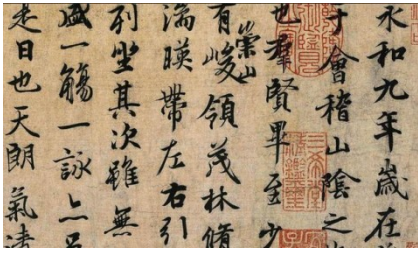 永和九年歲在
于會稽山陰之
也羣賢畢至少
有崇山峻領茂林脩
湍暎帶左右引
列坐其次雖無
盛一觴一詠亦
是日也天朗氣清
三希堂精鑑璽